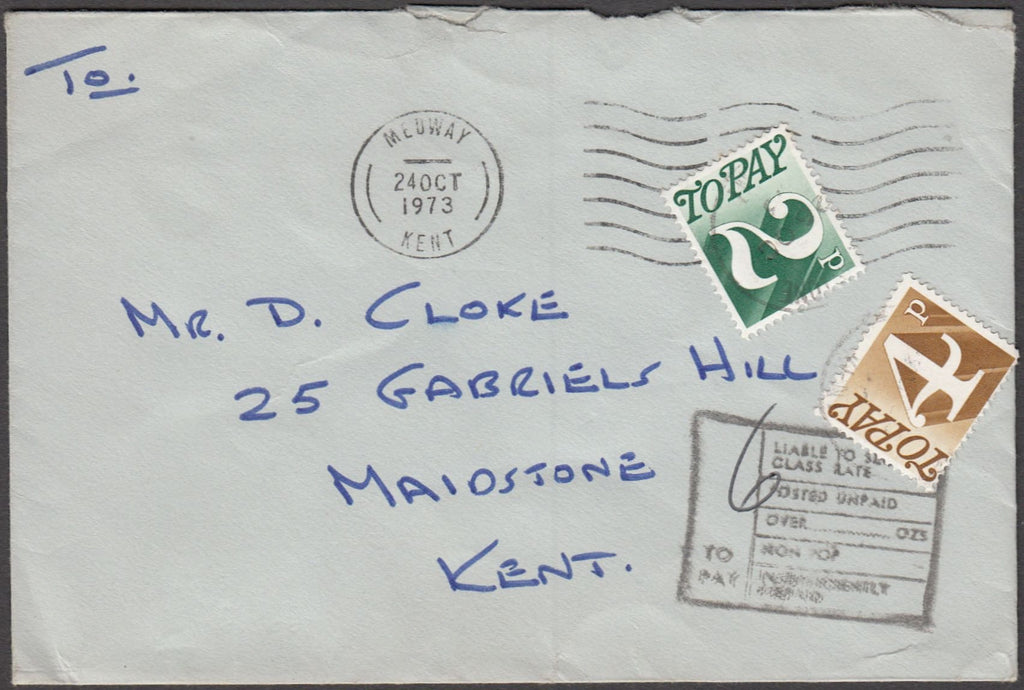 To.
MEDWAY
24 OCT
1973
KENT
TO PAY
2
P
P
4
TO PAY
MR. D. CLOKE
25 GABRIELS HILL
MAIDSTONE
KENT.
6
LIABLE TO
CLASS RATE
POSTED UNPAID
OVER............OZS
NON POP
TO
PAY